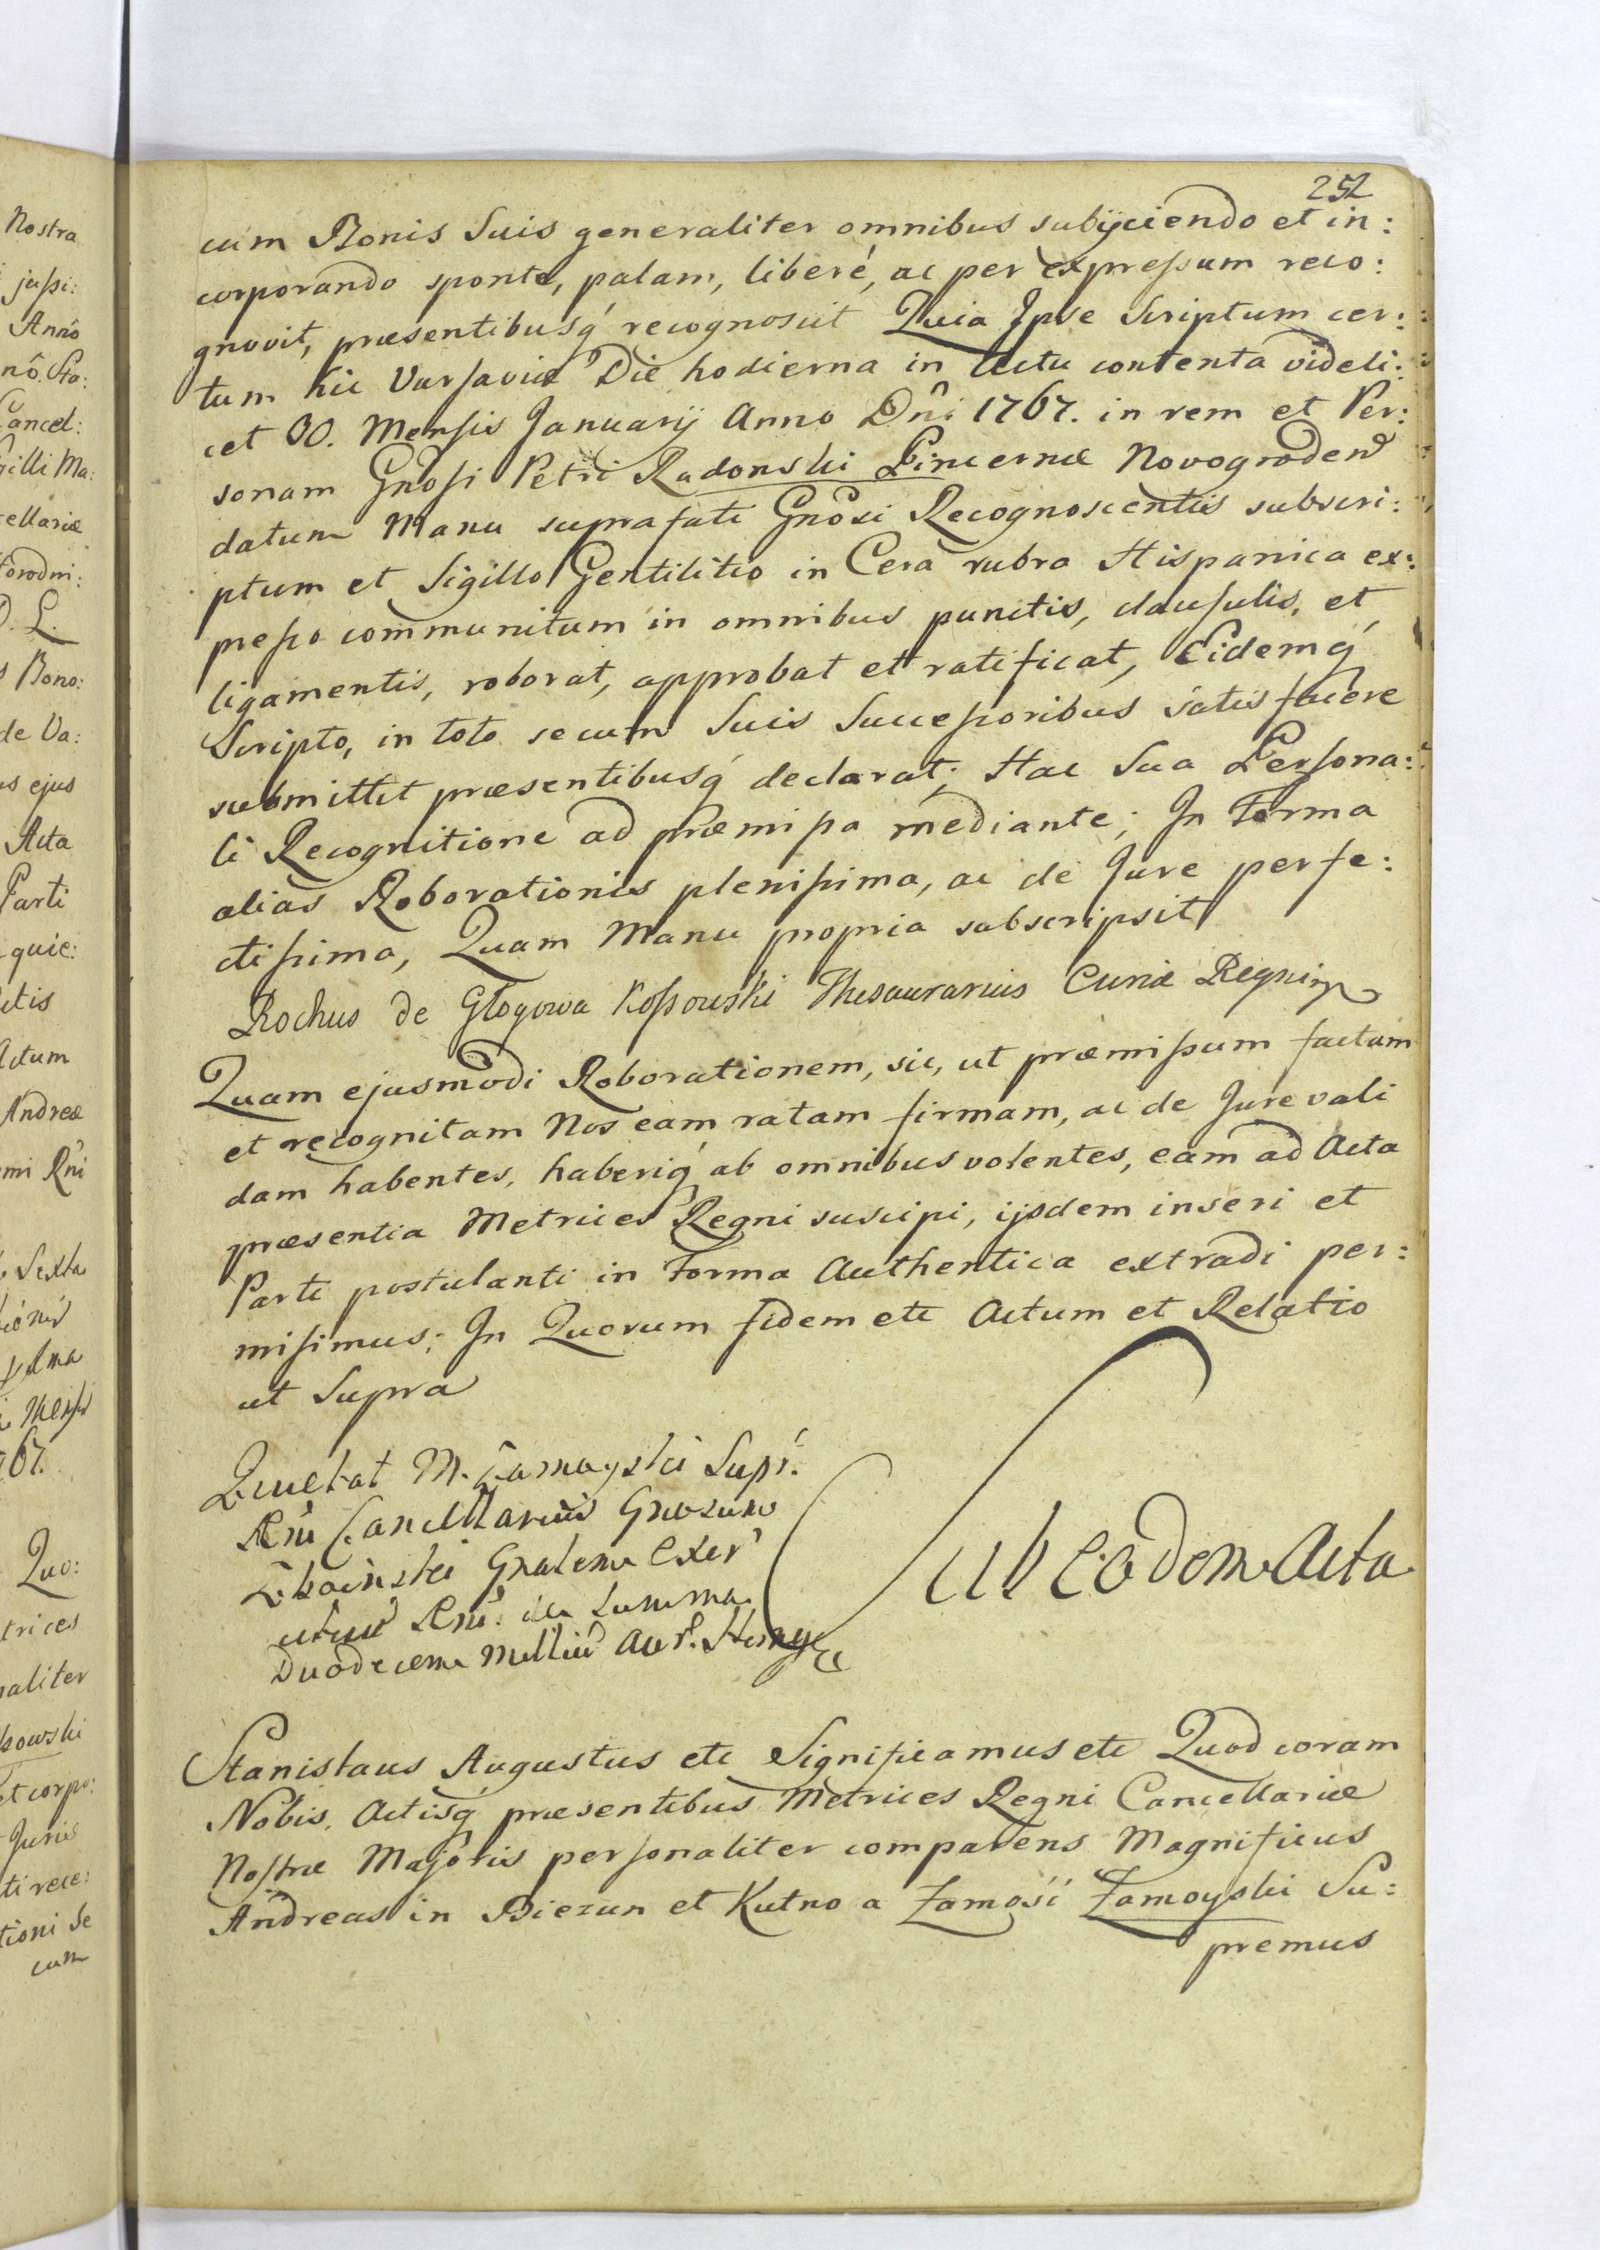 Nostra
jussi:
Anno
nô. Sto:
Cancel:
gilli Ma:
cellariæ
D. L.
s Bono:
de Va:
us ejus
Acta
Parti
quie:
Actum
Andreæ
mi Rñi
Sexta
67.
Quo:
trices
naliter
kowski
et corpo:
Juris
ti rece:
tioni se
cum
252
cum Bonis Suis generaliter omnibus subijciendo et in:
corporando sponte, palam, liberé, ac per expressum reco:
gnovit, præsentibusq́ recognoscit Quia Ipse Scriptum cer:
tum hic Varsaviæ Die hodierna in Actu contenta videli:
cet 30. Mensis Januarij Anno Dñi 1767. in rem et Per:
sonam Gñosi Petri Radonski Pincernæ Novograden
datum Manu suprafati Gñosi Recognoscentis subscri:
ptum et Sigillo Gentilitio in Cera rubra Hispanica ex:
presso communitum in omnibus punctis, clausulis, et
ligamentis, roborat, approbat et ratificat, Eidemq́
Scripto, in toto secum Suis Successoribus satisfacere
submittit præsentibusq́ declarat; Hac Sua Persona:
li Recognitione ad præmissa mediante; In Forma
alias Roborationis plenissima, ac de Jure perfe:
ctissima, Quam Manu propria subscripsit
Rochus de Głogowa Kossowski Thesaurarius Curiæ Regni mp
Quam ejusmodi Roborationem, sic, ut præmissum factam
et recognitam Nos eam ratam firmam, ac de Jure vali
dam habentes, haberiq́ ab omnibus volentes, eam ad Acta
præsentia Metrices Regni suscipi, ijsdem inseri et
Parti postulanti in Forma Authentica extradi per:
misimus; In Quorum fidem etc Actum et Relatio
ut Supra
Quietat M. Zamoyski Supr.
Rñi Cancellarius Gnosum
Zboinski Gnalem Exer
cituu Rni. de Summa
Duodecem Milliu Aur. Hung.
Sub Eodem Acta
Stanislaus Augustus etc Significamus etc Quod coram
Nobis. Actisq́ præsentibus Metrices Regni Cancellariæ
Nostræ Majoris personaliter comparens Magnificus
Andreas in Biezun et Kutno a Zamość Zamoyski Su:
premus